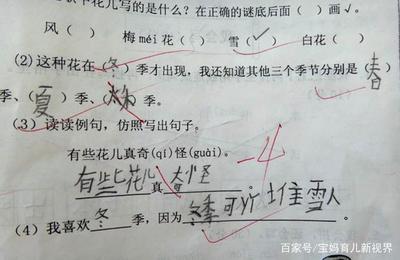 以下花儿写的是什么？在正确的谜底后面（ ）画√。
风（ ） 梅 méi 花（ ） 雪（√） 白花（ ）
(2) 这种花在（冬）季才出现，我还知道其他三个季节分别是（春）
季、（夏）季、（秋）季。
(3) 读读例句，仿照写出句子。
有些花儿真奇(qí)怪(guài)。
-4
有些花儿真奇怪。
(4) 我喜欢冬季，因为冬季可以堆雪人。
百家号/宝妈育儿新视界